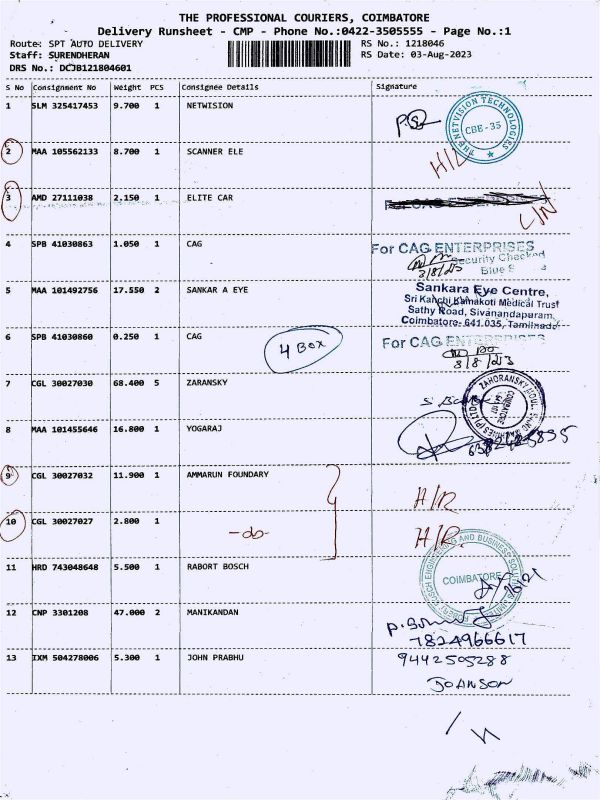 THE PROFESSIONAL COURIERS, COIMBATORE
Delivery Runsheet - CMP - Phone No.:0422-3505555 - Page No.:1
Route: SPT AUTO DELIVERY RS No.: 1218046
Staff: SURENDHERAN RS Date: 03-Aug-2023
DRS No.: DCJB121804601
S No Consignment No Weight PCS Consignee Details Signature
1 SLM 325417453 9.700 1 NETWISION
THE NETVISION TECHNOLOGIES
CBE-35
2 MAA 105562133 8.700 1 SCANNER ELE H/L
3 AMD 27111038 2.150 1 ELITE CAR
4 SPB 41030863 1.050 1 CAG For CAG ENTERPRISES
Security Checked
3/8/23
5 MAA 101492756 17.550 2 SANKAR A EYE Sankara Eye Centre,
Sri Kanchi Kamakoti Medical Trust
Sathy Road, Sivanandapuram,
Coimbatore- 641 035, Tamilnadu
6 SPB 41030860 0.250 1 CAG For CAG ENTERPRISES
4 Box
3/8/23
7 CGL 30027030 68.400 5 ZARANSKY
COIMBATORE
8 MAA 101455646 16.800 1 YOGARAJ
9 CGL 30027032 11.900 1 AMMARUN FOUNDARY H/R
10 CGL 30027027 2.800 1 -do- H/R
11 HRD 743048648 5.500 1 RABORT BOSCH
COIMBATORE
12 CNP 3301208 47.000 2 MANIKANDAN
7824966617
13 IXM 504278006 5.300 1 JOHN PRABHU 9442505288
JOANSON